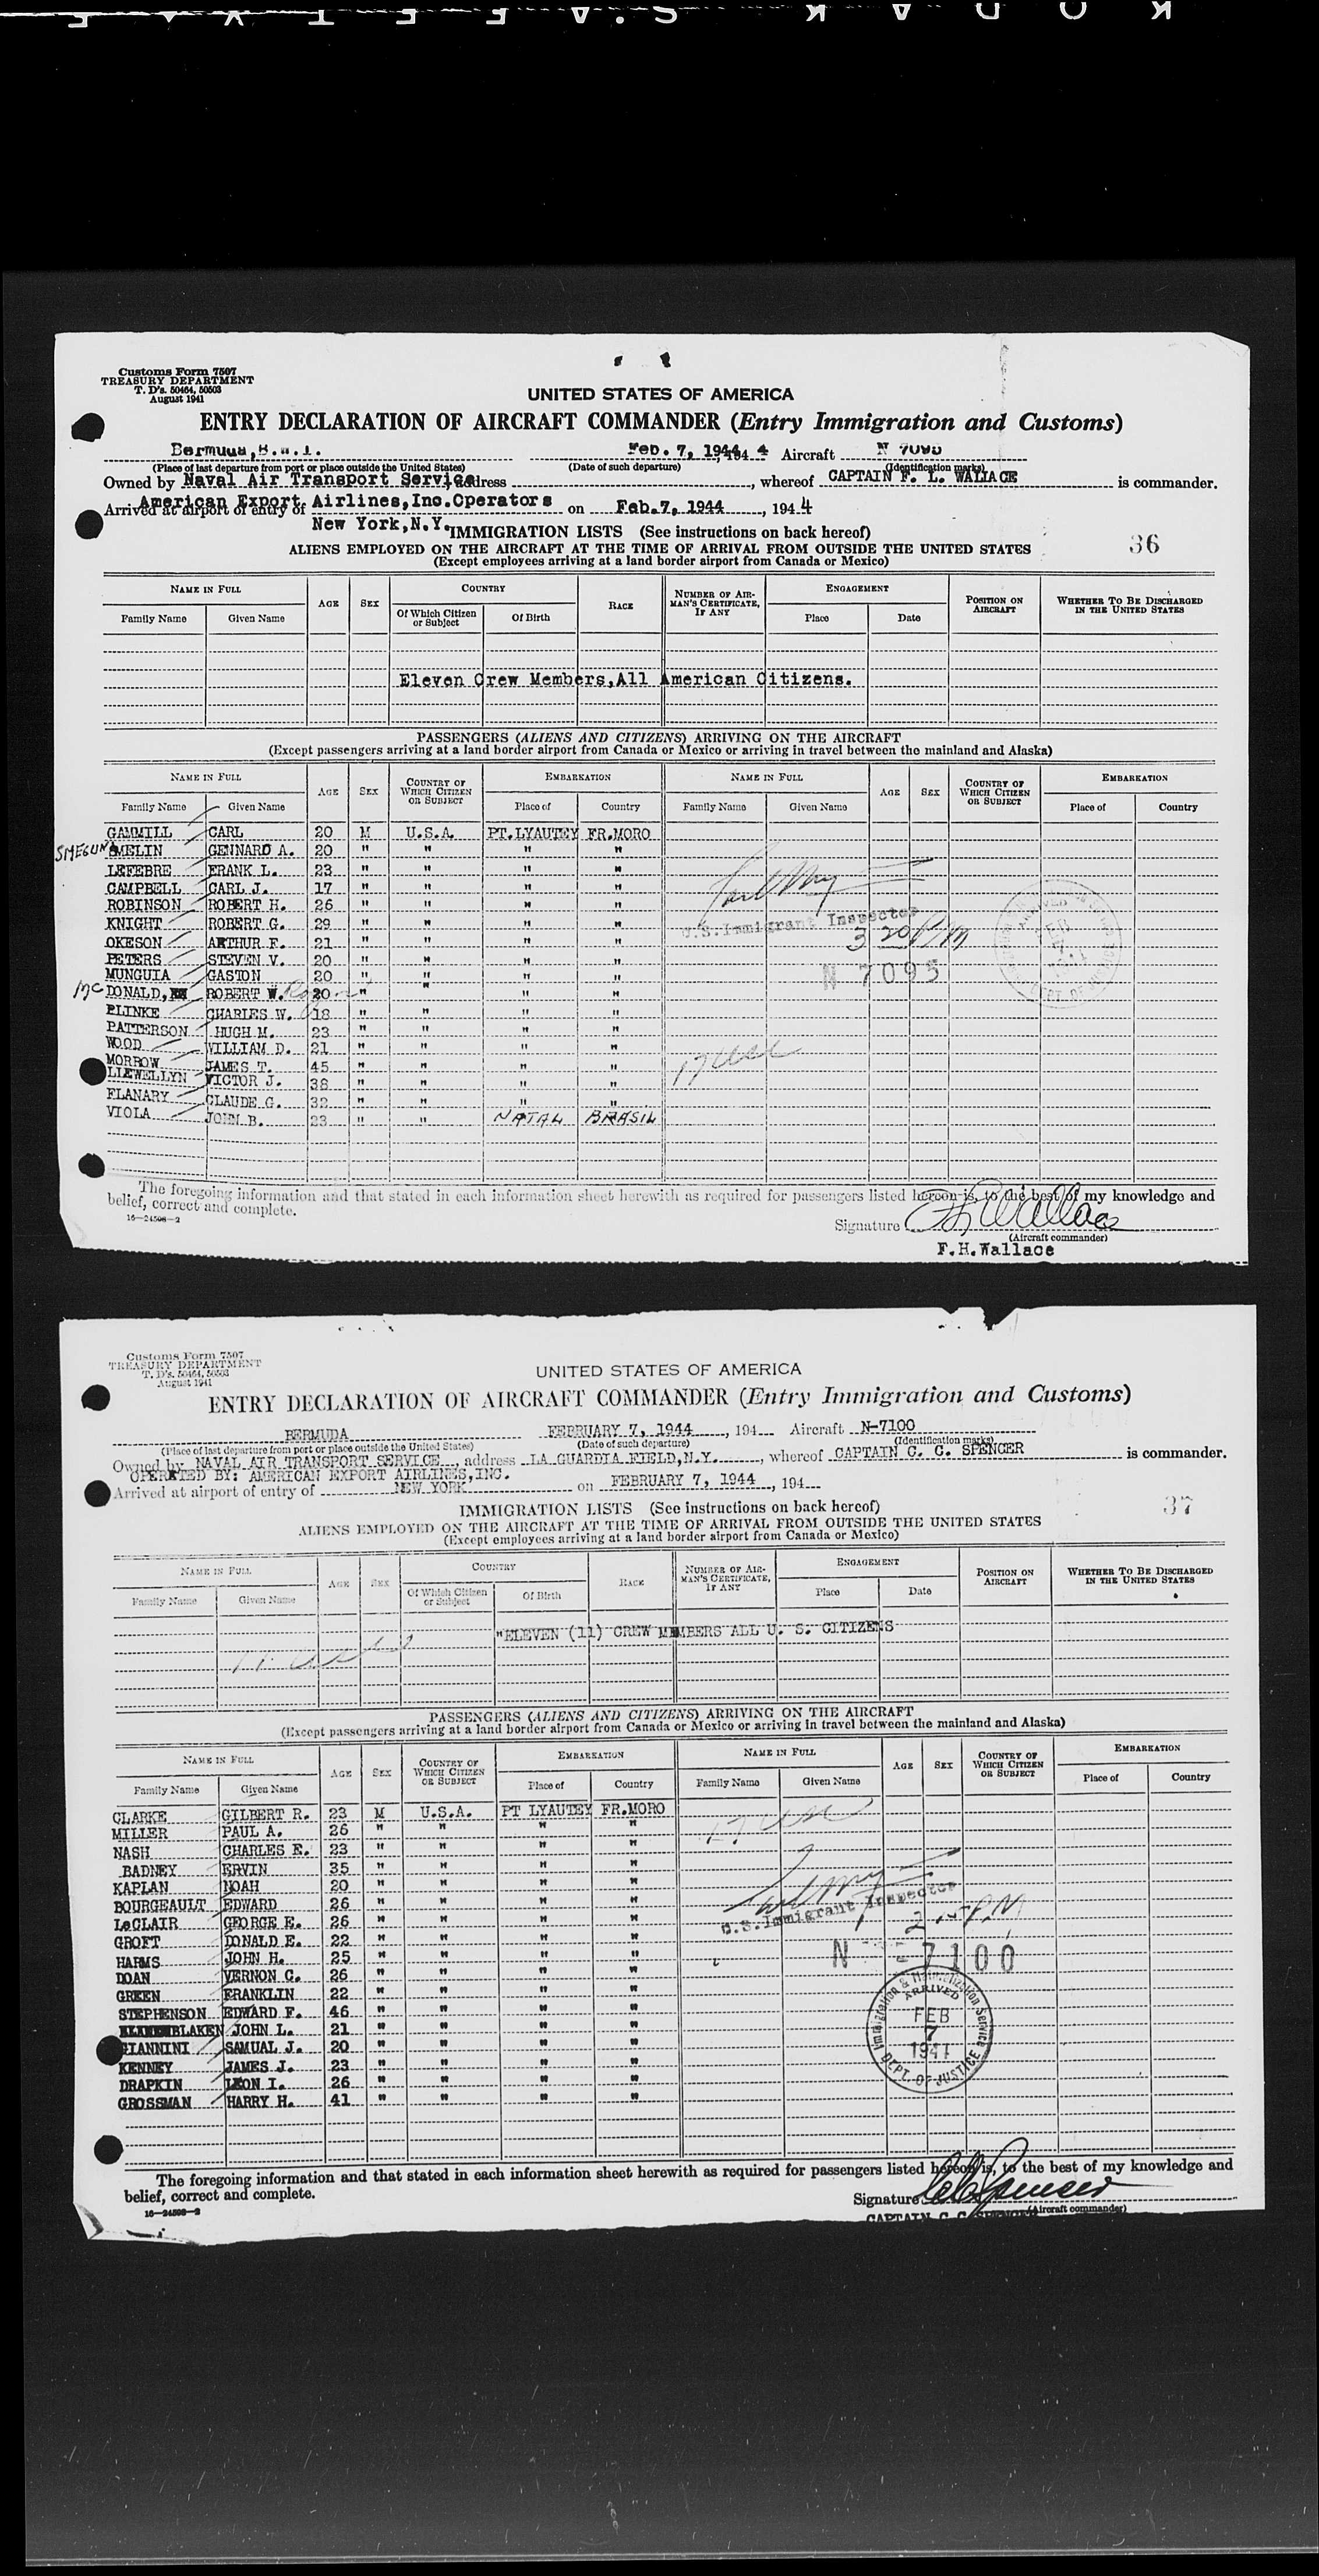 KODAK SAFETY
Customs Form 7507
TREASURY DEPARTMENT
T. D's. 50464, 50503
August 1941
UNITED STATES OF AMERICA
ENTRY DECLARATION OF AIRCRAFT COMMANDER (Entry Immigration and Customs)
Bermuda, B.W.I. Feb. 7, 1944, 194 4 Aircraft N 7095
(Place of last departure from port or place outside the United States) (Date of such departure) (Identification marks)
Owned by Naval Air Transport Service address , whereof CAPTAIN F. L. WALLACE is commander.
American Export Airlines,Inc.Operators
Arrived at airport of entry of on Feb.7, 1944, 194 4
New York,N.Y.
IMMIGRATION LISTS (See instructions on back hereof)
36
ALIENS EMPLOYED ON THE AIRCRAFT AT THE TIME OF ARRIVAL FROM OUTSIDE THE UNITED STATES
(Except employees arriving at a land border airport from Canada or Mexico)
NAME IN FULL AGE SEX COUNTRY RACE NUMBER OF AIRMAN'S CERTIFICATE, IF ANY ENGAGEMENT POSITION ON AIRCRAFT WHETHER TO BE DISCHARGED IN THE UNITED STATES
Family Name Given Name Of Which Citizen or Subject Of Birth Place Date
Eleven Crew Members,All American Citizens.
PASSENGERS (ALIENS AND CITIZENS) ARRIVING ON THE AIRCRAFT
(Except passengers arriving at a land border airport from Canada or Mexico or arriving in travel between the mainland and Alaska)
NAME IN FULL AGE SEX COUNTRY OF WHICH CITIZEN OR SUBJECT EMBARKATION NAME IN FULL AGE SEX COUNTRY OF WHICH CITIZEN OR SUBJECT EMBARKATION
Family Name Given Name Place of Country Family Name Given Name Place of Country
GAMMILL CARL 20 M U.S.A. PT.LYAUTEY FR.MORO
SMELIN GENNARO A. 20 " " " "
LEFEBRE FRANK L. 23 " " " "
CAMPBELL CARL J. 17 " " " "
ROBINSON ROBERT H. 26 " " " "
KNIGHT ROBERT G. 29 " " " "
U.S.Immigrant Inspector
OKESON ARTHUR F. 21 " " " "
3 20 PM
PETERS STEVEN V. 20 " " " "
MUNGUIA GASTON 20 " " " "
N 7095
Mc DONALD, ROBERT W. 20 " " " "
PLINKE CHARLES W. 18 " " " "
PATTERSON HUGH M. 23 " " " "
WOOD WILLIAM D. 21 " " " "
MORROW JAMES T. 45 " " " "
17 USC
LLEWELLYN VICTOR J. 38 " " " "
FLANARY CLAUDE G. 32 " " " "
VIOLA JOHN B. 23 " " NATAL BRASIL
The foregoing information and that stated in each information sheet herewith as required for passengers listed hereon is, to the best of my knowledge and
belief, correct and complete.
16—24508-2
Signature F L Wallace
(Aircraft commander)
F.H.Wallace
Customs Form 7507
TREASURY DEPARTMENT
T. D's. 50464, 50503
August 1941
UNITED STATES OF AMERICA
ENTRY DECLARATION OF AIRCRAFT COMMANDER (Entry Immigration and Customs)
BERMUDA FEBRUARY 7, 1944, 194 Aircraft N-7100
(Place of last departure from port or place outside the United States) (Date of such departure) (Identification marks)
Owned by NAVAL AIR TRANSPORT SERVICE, address LA GUARDIA FIELD,N.Y., whereof CAPTAIN C. C. SPENCER is commander.
OPERATED BY: AMERICAN EXPORT AIRLINES,INC.
Arrived at airport of entry of NEW YORK on FEBRUARY 7, 1944, 194
IMMIGRATION LISTS (See instructions on back hereof)
37
ALIENS EMPLOYED ON THE AIRCRAFT AT THE TIME OF ARRIVAL FROM OUTSIDE THE UNITED STATES
(Except employees arriving at a land border airport from Canada or Mexico)
NAME IN FULL AGE SEX COUNTRY RACE NUMBER OF AIRMAN'S CERTIFICATE, IF ANY ENGAGEMENT POSITION ON AIRCRAFT WHETHER TO BE DISCHARGED IN THE UNITED STATES
Family Name Given Name Of Which Citizen or Subject Of Birth Place Date
"ELEVEN (11) CREW MEMBERS ALL U. S. CITIZENS
PASSENGERS (ALIENS AND CITIZENS) ARRIVING ON THE AIRCRAFT
(Except passengers arriving at a land border airport from Canada or Mexico or arriving in travel between the mainland and Alaska)
NAME IN FULL AGE SEX COUNTRY OF WHICH CITIZEN OR SUBJECT EMBARKATION NAME IN FULL AGE SEX COUNTRY OF WHICH CITIZEN OR SUBJECT EMBARKATION
Family Name Given Name Place of Country Family Name Given Name Place of Country
CLARKE GILBERT R. 23 M U.S.A. PT LYAUTEY FR.MORO
MILLER PAUL A. 26 " " " "
NASH CHARLES E. 23 " " " "
BADNEY ERVIN 35 " " " "
KAPLAN NOAH 20 " " " "
BOURGEAULT EDWARD 26 " " " "
LeCLAIR GEORGE E. 26 " " " "
U.S.Immigrant Inspector
GROFT DONALD E. 22 " " " "
HARMS JOHN H. 25 " " " "
N 7100
DOAN VERNON C. 26 " " " "
GREEN FRANKLIN 22 " " " "
STEPHENSON EDWARD F. 46 " " " "
BLAKEN JOHN L. 21 " " " "
GIANNINI SAMUAL J. 20 " " " "
KENNEY JAMES J. 23 " " " "
DRAPKIN LEON I. 26 " " " "
GROSSMAN HARRY H. 41 " " " "
Immigration & Naturalization Service
ARRIVED
FEB
7
1944
DEPT. OF JUSTICE
The foregoing information and that stated in each information sheet herewith as required for passengers listed hereon is, to the best of my knowledge and
belief, correct and complete.
16—24508-2
Signature C C Spencer
(Aircraft commander)
CAPTAIN C. C. SPENCER